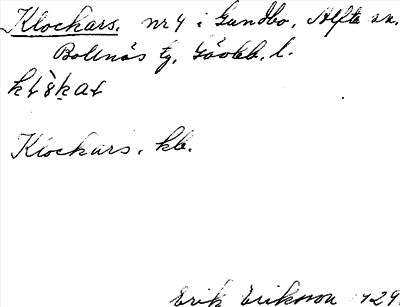 Klockars. nr 4 i Gundbo, Alfta sn.
Bollnäs tg. Gävleb. l.
Klockars. kb.
Erik Eriksson 1929